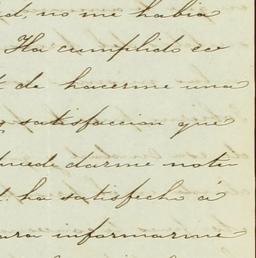 d, no me había
Ha cumplido co
de hacerme una
satisfaccion que
puede darme noti
ha satisfecho á
ara informarme